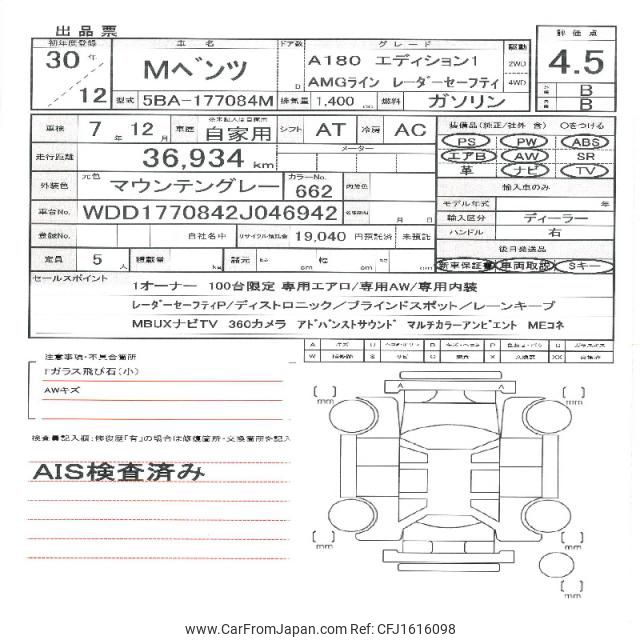 出品票
初年度登録 車 名 ドア数 グレード 評価点
30年 Mベンツ D A180 エディション1 駆動 2WD 4WD 4.5
12 AMGライン レーダーセーフティ B
型式 5BA-177084M 排気量 1,400 燃料 ガソリン B
車検 7年 12月 車歴 自家用 シフト AT 冷房 AC 装備品(純正/社外 含) ○をつける
PS PW ABS
走行距離 36,934 km メーター エアB AW SR
革 ナビ TV
外装色 元色 マウンテングレー カラーNo. 662 内装色 輸入車のみ
モデル年式 年
車台No. WDD1770842J046942 月 日 輸入区分 ディーラー
登録No. 自社名中 リサイクル預託金 19,040 円預託済 未預託 ハンドル 右
後日発送品
定員 5人 積載量 kg 諸元 cm cm cm 新車保証書 車両取説 Sキー
セールスポイント
1オーナー 100台限定 専用エアロ/専用AW/専用内装
レーダーセーフティP/ディストロニック/ブラインドスポット/レーンキープ
MBUXナビTV 360カメラ アドバンストサウンド マルチカラーアンビエント MEコネ
注意事項・不具合箇所
Fガラス飛び石(小)
AWキズ
検査員記入欄:修復歴「有」の場合は修復箇所・交換箇所を記入
AIS検査済み
A A
[ ] mm
[ ] mm
[ ] mm
[ ] mm
[ ] mm
www.CarFromJapan.com Ref: CFJ1616098